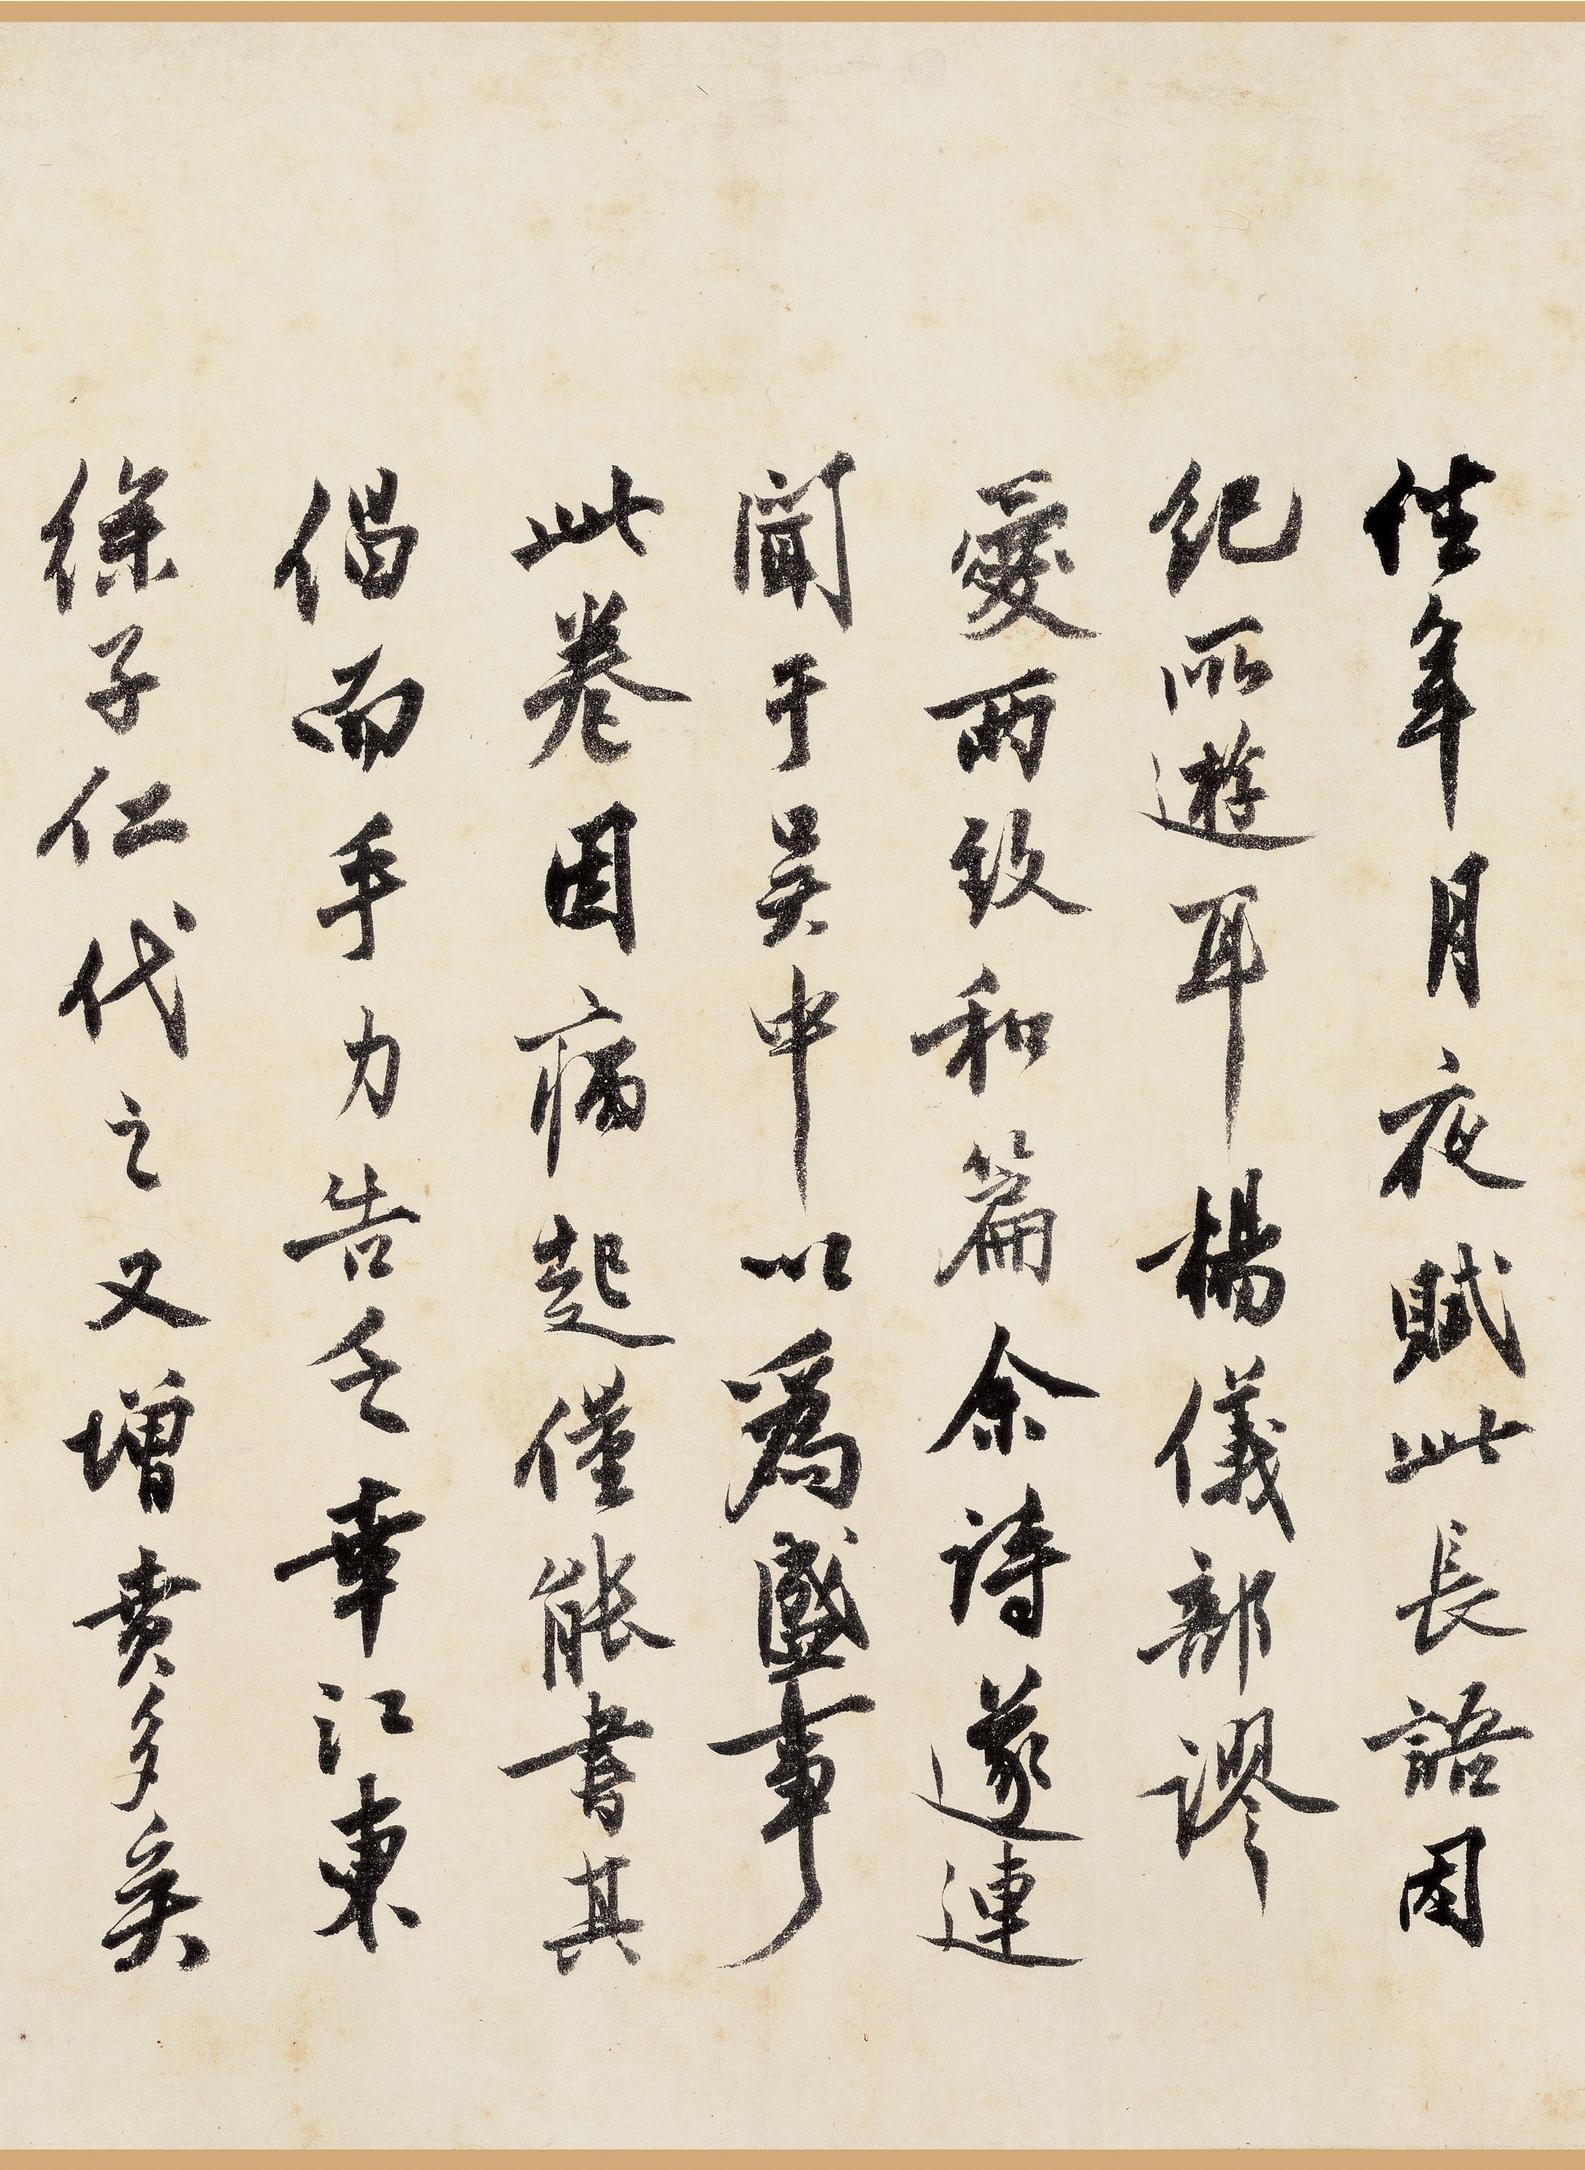 往年月夜賦此長語因
紀所遊耳楊儀部謬
愛兩致和篇余詩遂連
聞于吳中以爲盛事
此卷因病起僅能書其
倡而手力告乏幸江東
徐子仁代之又增賁多矣